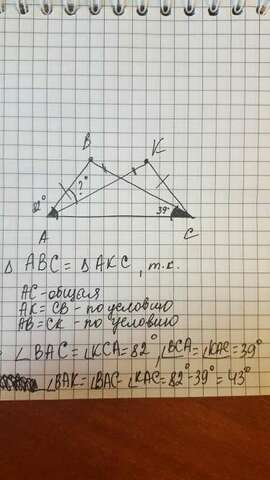 B K
?°
82° 39°
A C
Δ ABC = Δ AKC, т.к.
AC - общая
AK = CB - по условию
AB = CK - по условию
∠BAC = ∠KCA = 82°, ∠BCA = ∠KAC = 39°
∠BAK = ∠BAC - ∠KAC = 82° - 39° = 43°